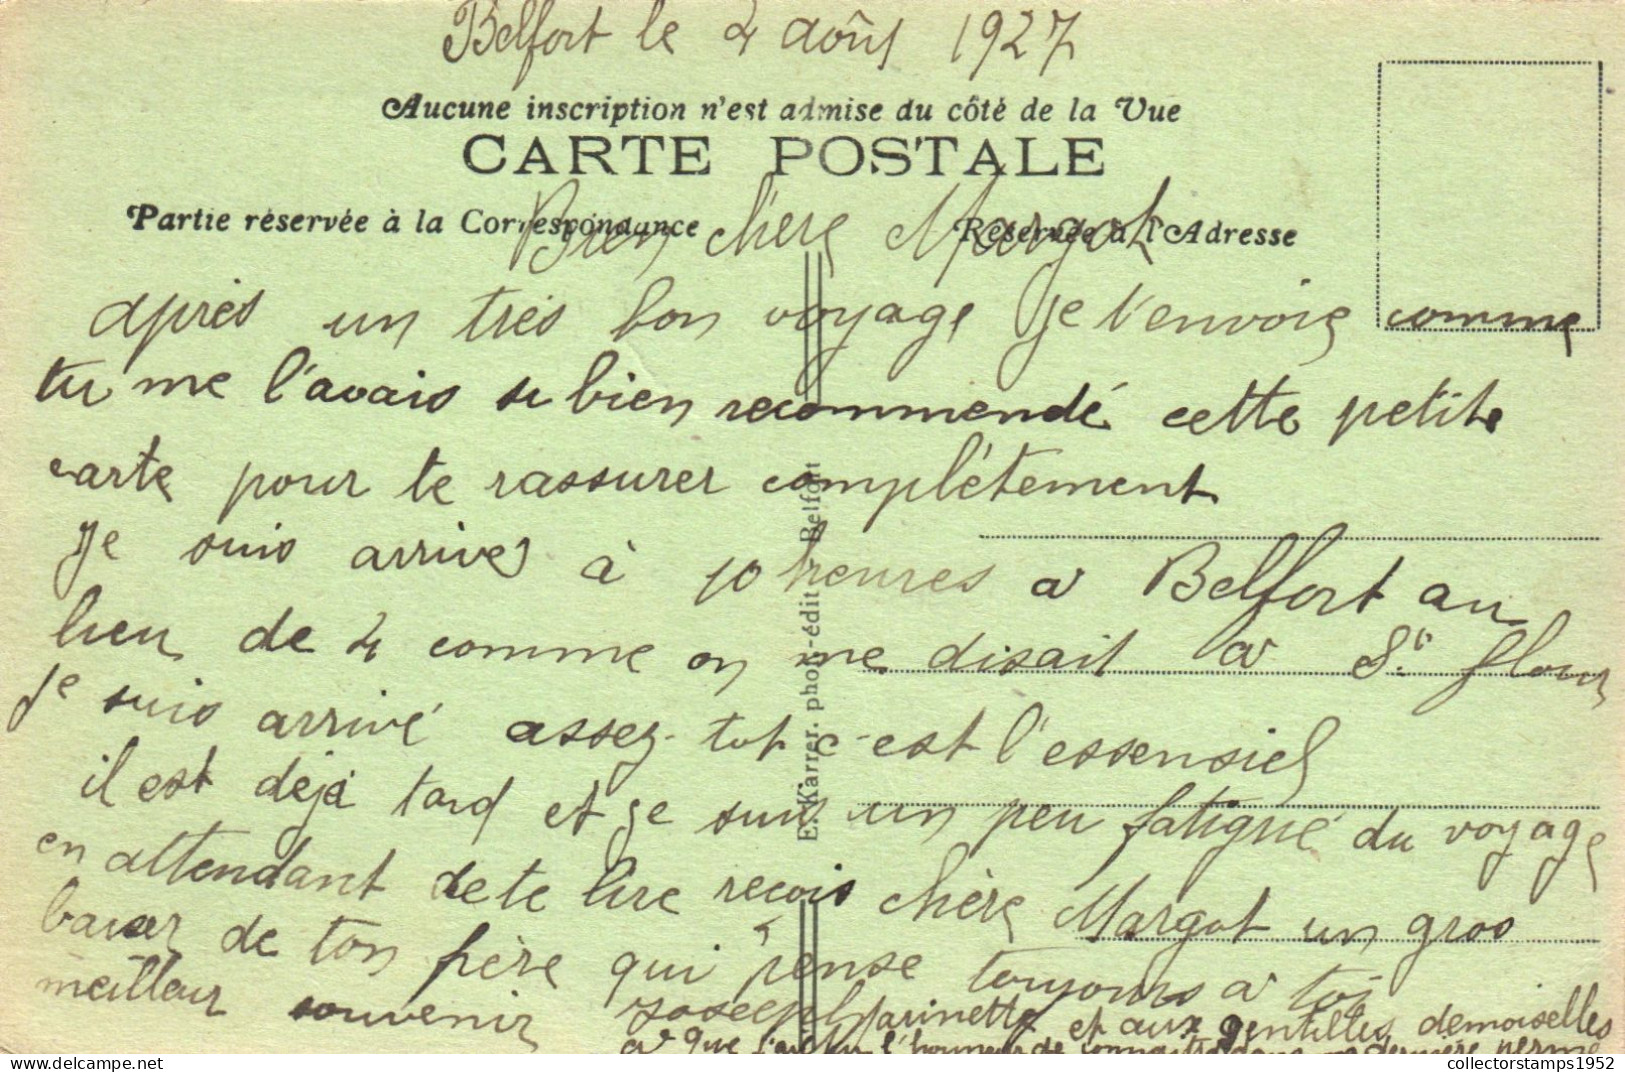 Belfort le 4 août 1927
Aucune inscription n'est admise du côté de la Vue
CARTE POSTALE
Partie réservée à la Correspondance
Réservée à l'Adresse
Bien chère Margot
après un très bon voyage je t'envoie comme
tu me l'avais si bien recommendé cette petite
carte pour te rassurer complétement
Je suis arrivé à 10 heures a Belfort au
lieu de 4 comme on me disait a St. flour
je suis arrivé assez tot c'est l'essensiel
il est déjà tard et je suis un peu fatigué du voyage
en attendant de te lire reçois chère Margot un gros
baiser de ton frère qui pense toujours a toi
meilleur souvenir Joseph
Marinette et aux gentilles demoiselles
que j'ai eu l'honneur de connaitre dans ma dernière perme
E. Karrer. photo-édit Belfort
collectorstamps1952